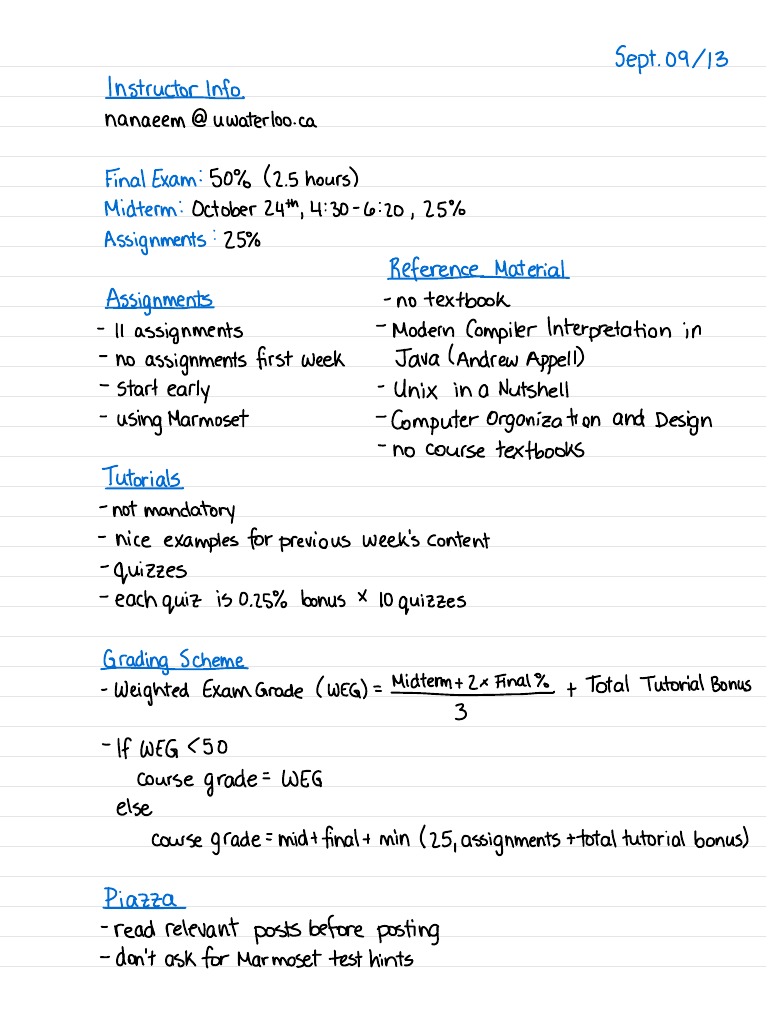 Sept. 09/13
Instructor Info.
nanaeem @ uwaterloo.ca
Final Exam: 50% (2.5 hours)
Midterm: October 24th, 4:30-6:20, 25%
Assignments: 25%
Assignments
- 11 assignments
- no assignments first week
- start early
- using Marmoset
Reference Material
- no textbook
- Modern Compiler Interpretation in
Java (Andrew Appell)
- Unix in a Nutshell
- Computer Organization and Design
- no course textbooks
Tutorials
- not mandatory
- nice examples for previous week's content
- quizzes
- each quiz is 0.25% bonus × 10 quizzes
Grading Scheme
- Weighted Exam Grade (WEG) = Midterm + 2 × Final % / 3 + Total Tutorial Bonus
- If WEG < 50
course grade = WEG
else
course grade = mid + final + min (25, assignments + total tutorial bonus)
Piazza
- read relevant posts before posting
- don't ask for Marmoset test hints